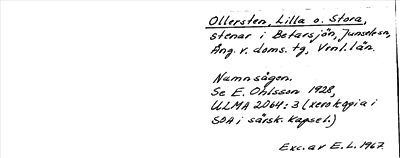 Ollersten, Lilla o. Stora,
stenar i Betarsjön, Junsele sn,
Ång. v. doms. tg, Vnl. län.
Namnsägen.
Se E. Ohlsson 1928,
ULMA 2064:3 (xerokopia i
SOA i särsk. kapsel.)
Exc. av E. L. 1967.